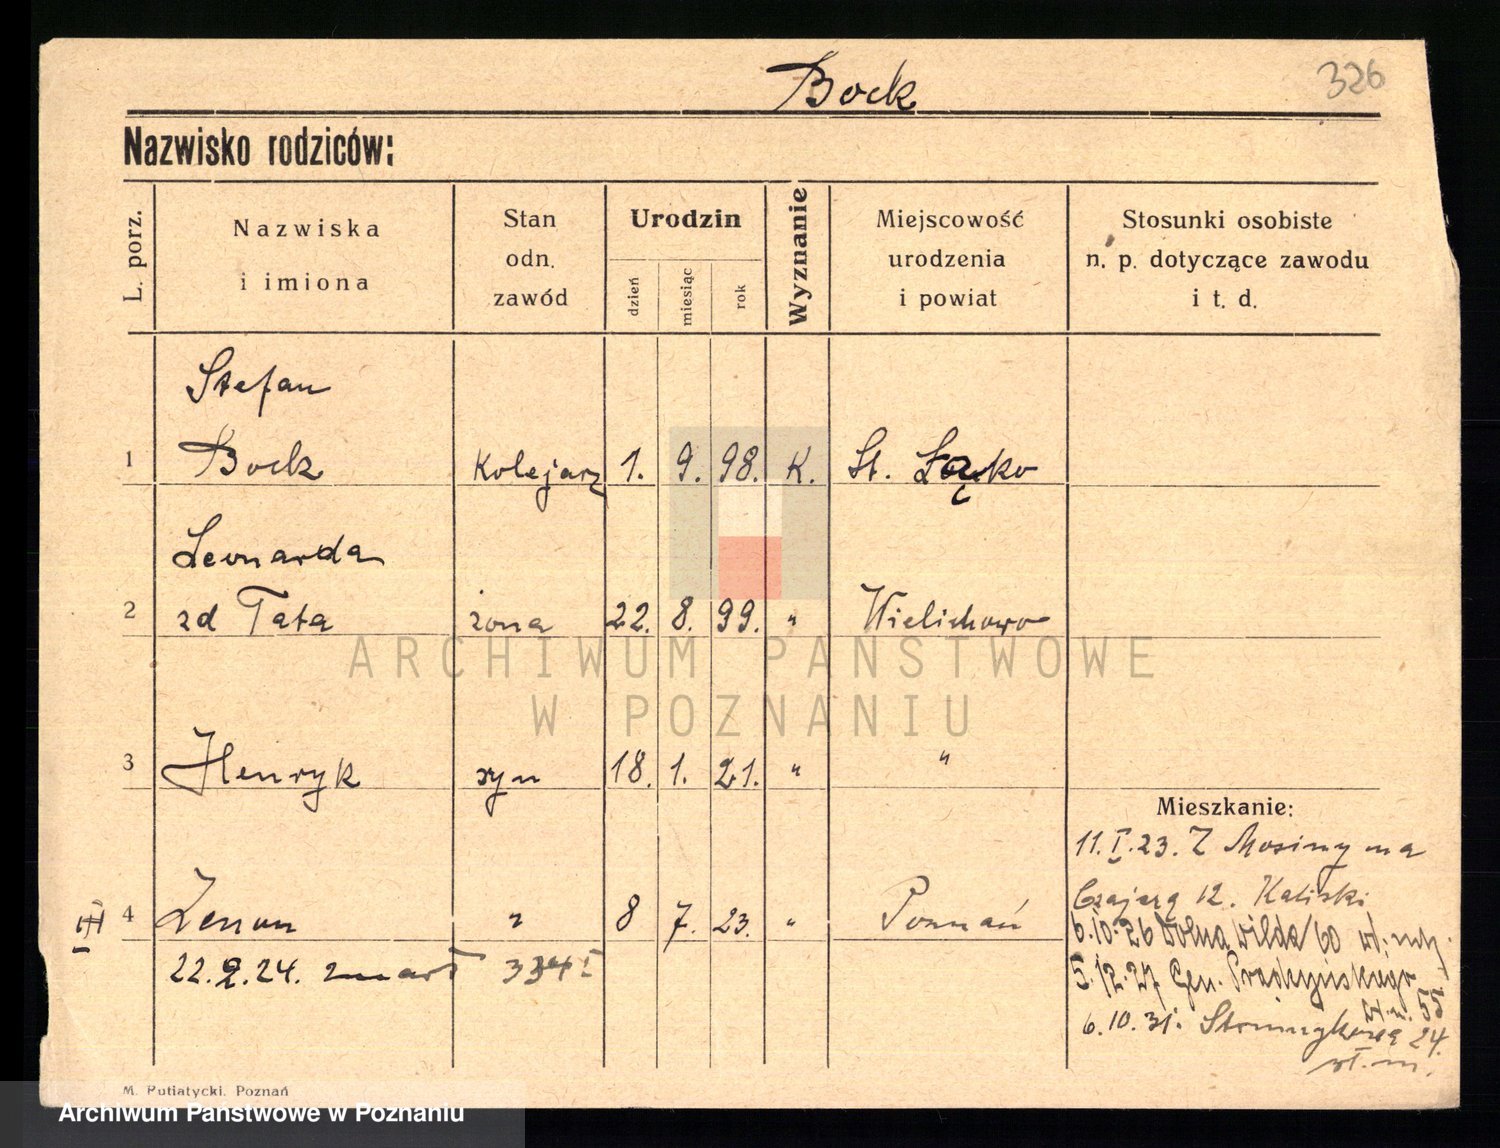 Bock 326
Nazwisko rodziców:
L. porz.
Nazwiska
i imiona
Stan
odn.
zawód
Urodzin
dzień
miesiąc
rok
Wyznanie
Miejscowość
urodzenia
i powiat
Stosunki osobiste
n. p. dotyczące zawodu
i t. d.
Stefan
1 Bock Kolejarz 1. 9. 98. K. St. Łąko
Leonarda
2 zd Tata żona 22. 8. 99. " Wielichowo
3 Henryk syn 18. 1. 21. " "
Mieszkanie:
11. I. 23. Z Mosiny na
4 Zenon " 8 7. 23. " Poznań
Czajczą 12. Kaliski
6.10.26 Dolna Wilda 60
22.2.24. zmarł 334 I
5.12.27 Gen. Prądzyńskiego
55
6.10.31. 24.
M. Putiatycki, Poznań
ARCHIWUM PAŃSTWOWE
W POZNANIU
Archiwum Państwowe w Poznaniu